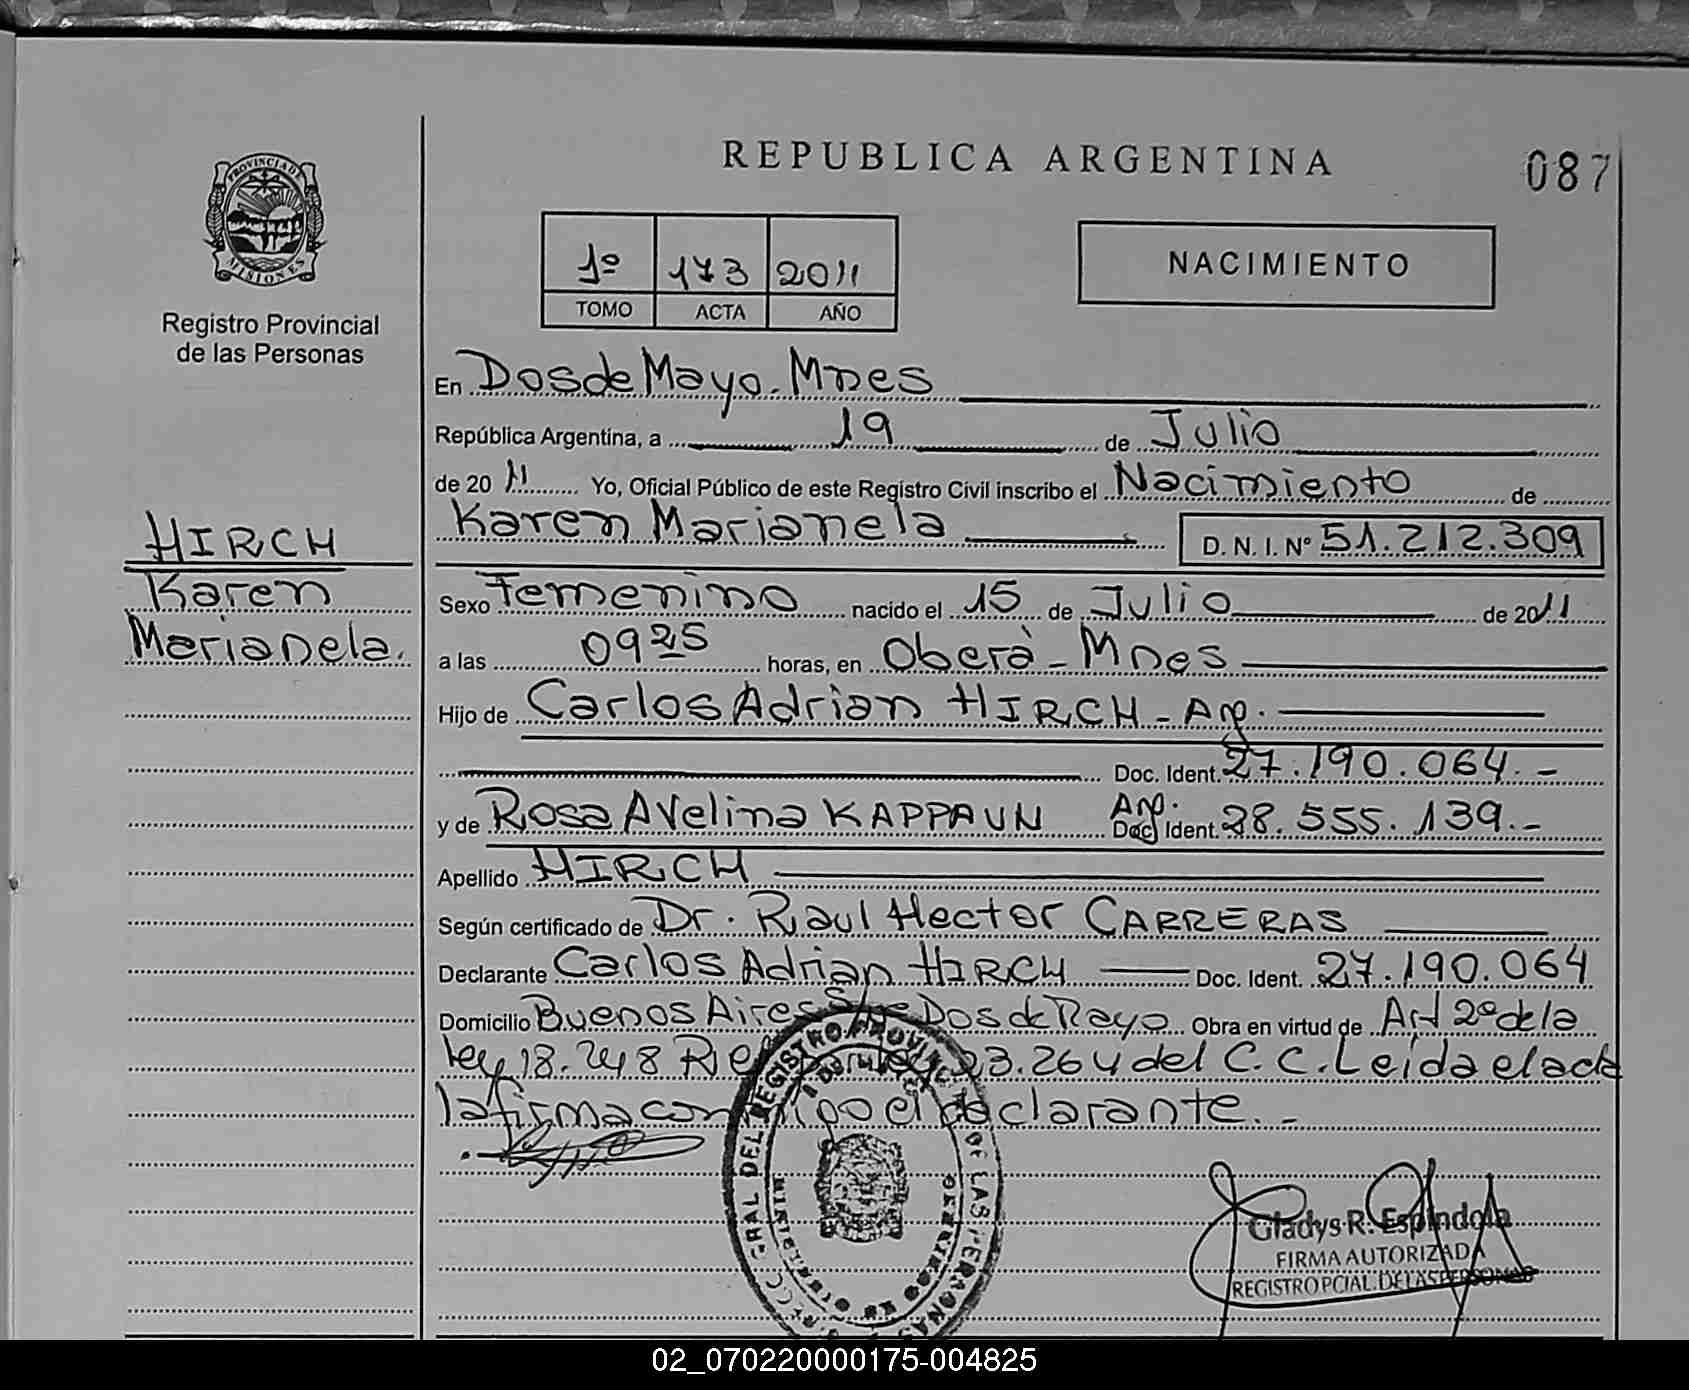 REPUBLICA ARGENTINA
087
PROVINCIA DE
MISIONES
Registro Provincial
de las Personas
1º 173 2011
TOMO ACTA AÑO
NACIMIENTO
En Dos de Mayo. Mnes
República Argentina, a 19 de Julio
de 20 11 Yo, Oficial Público de este Registro Civil inscribo el Nacimiento de
Karen Marianela D. N. I. Nº 51.212.309
HIRCH
Karen
Marianela.
Sexo Femenino nacido el 15 de Julio de 2011
a las 09 25 horas, en Oberà - Mnes
Hijo de Carlos Adrian HIRCH - Arg.
Doc. Ident. 27.190.064.-
y de Rosa Avelina KAPPAUN Arg. Doc. Ident. 28.555.139.-
Apellido HIRCH
Según certificado de Dr. Raul Hector CARRERAS
Declarante Carlos Adrian HIRCH Doc. Ident. 27.190.064
Domicilio Buenos Aires Dos de Mayo Obra en virtud de Art 2º de la
ley 18.248 23.264 del C. C. Leida el acta
la firma conmigo el declarante.-
DEL REGISTRO PROVINCIAL DE LAS PERSONAS
Gladys R. Espindola
FIRMA AUTORIZADA
REGISTRO PCIAL. DE LAS PERSONAS
02_070220000175-004825